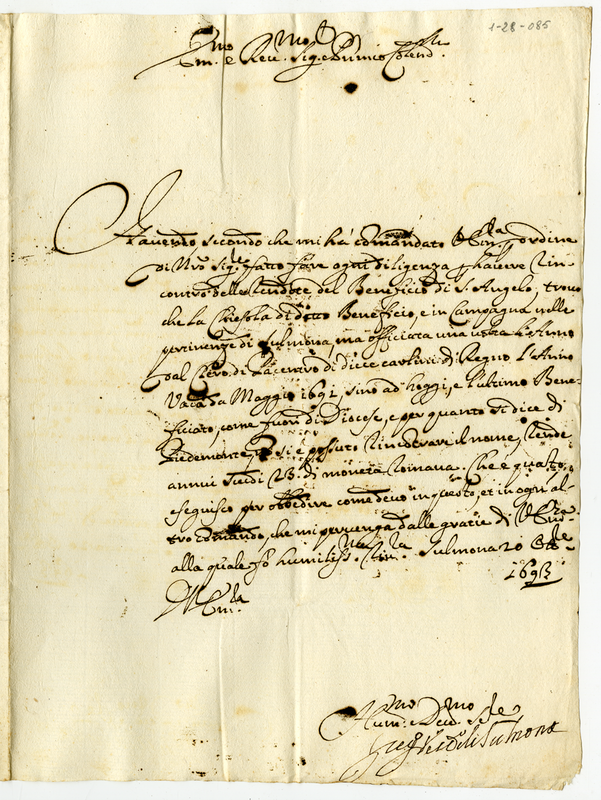 1-28-085
Em.mo e Rev.mo Sig.re e P.rone Col.mo
Havendo, secondo che mi hà comandato V. Em.za ordine
di N.ro Sig.re fatto fare ogni diligenza p havere rin
contro delle rendite del Beneficio di S. Angelo, trovo
che la Chiesola di detto Beneficio, è in Campagna nelle
pertinenze di Sulmona, ma officiata una volta l'Anno
dal Clero di Pacentro di diece carlini di Regno l'Anno
Vaca da Maggio 1691, sino ad hoggi, e l'ultimo Bene
ficiato, come fuori di Diocese, e per quanto si dice di
Piedemonte, si è possuto rincontrare il nome, rende
annui scudi 23. di moneta Romana. Che è quanto
eseguisco per obbedire come devo in questo, et in ogni al-
tro comando, che mi pervenga dalle gratie di V. Em.za
alla quale fò humiliss.ma Sulmona 20
1693
Di V. Em.za
Hum.mo e Dev.mo S.re
di Sulmona